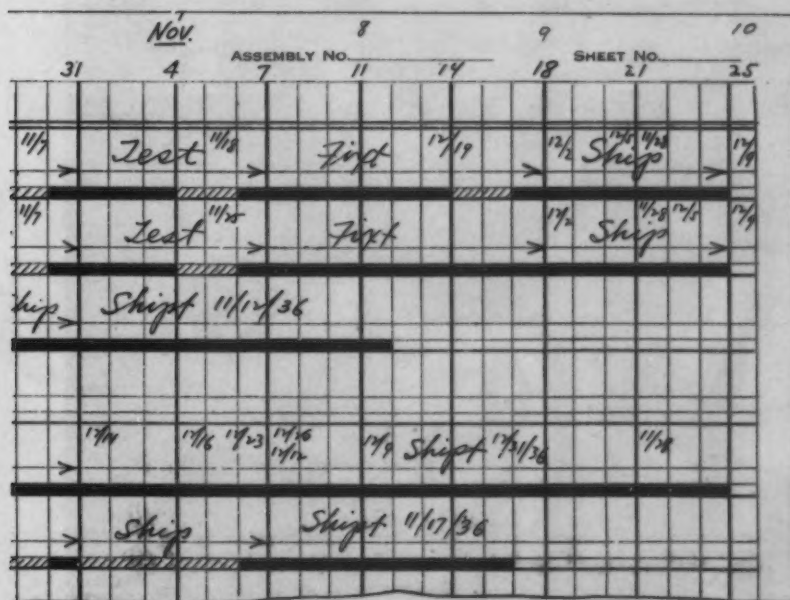 Nov. 8 9 10
ASSEMBLY No. SHEET No.
31 4 7 11 14 18 21 25
11/7 Test 11/18 Fixt 12/19 12/2 Ship 12/5 11/28 12/9
11/7 Test 11/25 Fixt 12/2 Ship 11/28 12/5 12/9
hip Shipt 11/12/36
12/14 12/16 12/23 12/26 12/9 Shipt 12/31/36 11/28
12/12
Ship Shipt 11/17/36